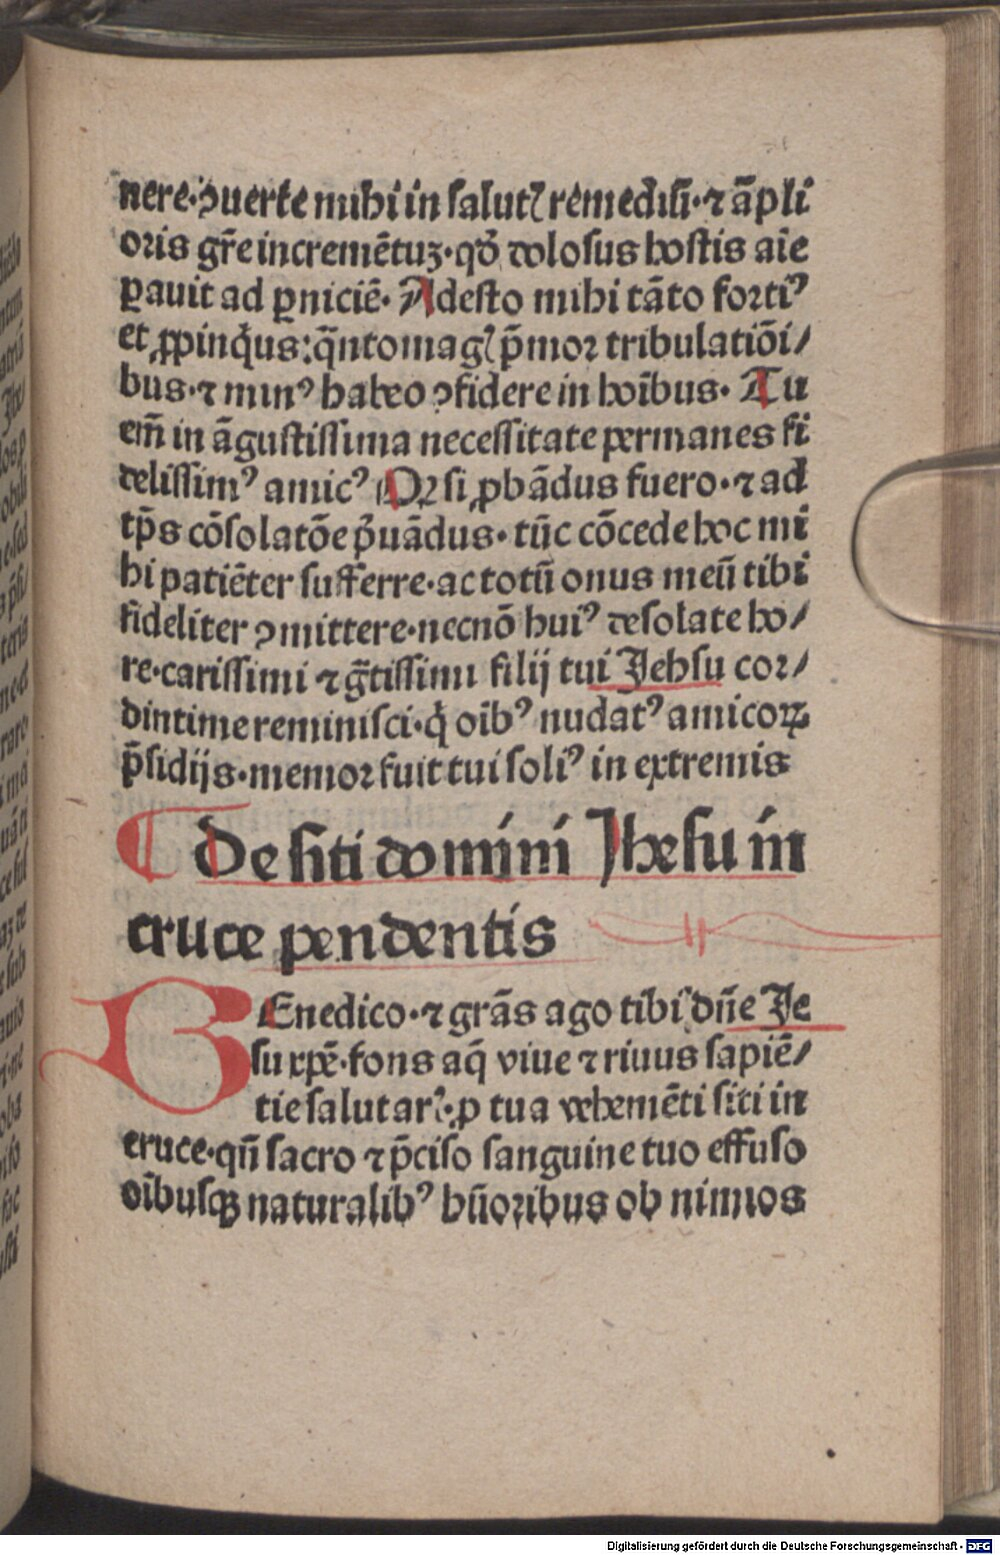 nere·ꝯuerte mihi in salutꝭ remediū·⁊ āpli
oris gr̄e incremētuꝫ·qđ dolosus hostis aīe
ꝑauit ad ꝑniciē· Adesto mihi tāto fortiꝰ
et ꝓpinq̇us:q̄nto magꝭ p̄mor tribulatiōi/
bus·⁊ minꝰ habeo ꝯfidere in hoībus· Tu
em̄ in āgustissima necessitate permanes fi
delissimꝰ amicꝰ Qꝛ si ꝓbādus fuero·⁊ ad
tp̄s cōsolatōe p̓uādus· tūc cōcede hoc mi
hi patiēter sufferre·ac totū onus meū tibi
fideliter ꝯmittere·necnō huiꝰ desolate ho/
re·carissimi ⁊ gᷓtissimi filij tui Jehsu cor/
dintime reminisci·q̇ oībꝰ nudatꝰ amicoꝝ
p̄sidijs·memor fuit tui soliꝰ in extremis
De siti domini Jhesu in
cruce pendentis
BEnedico·⁊ grās ago tibi dn̄e Je
su xp̄e·fons aq̄ viue ⁊ riuus sapiē/
tie salutarꝭ·ꝓ tua vehemēti siti in
cruce·qn̄ sacro ⁊ p̄ciso sanguine tuo effuso
oībusqꝫ naturalibꝰ hūoribus ob nimios
Digitalisierung gefördert durch die Deutsche Forschungsgemeinschaft - DFG